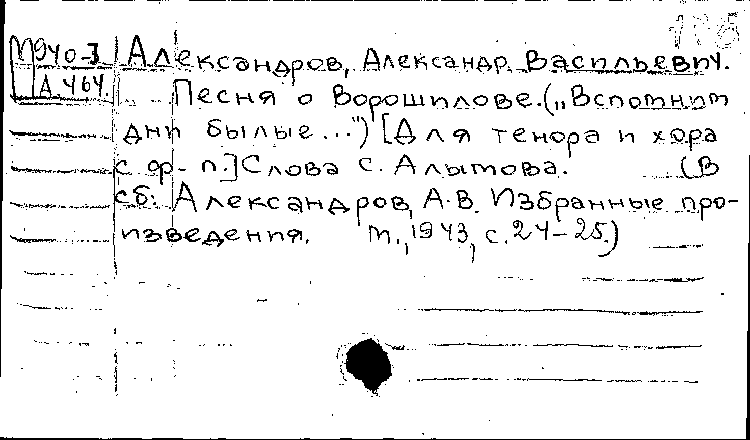 М940-3
А.464.
Александров, Александр Васильевич.
Песня о Ворошилове. („Вспомним
дни былые...“) [Для тенора и хора
с ф-п.] Слова С. Алымова. (В
сб: Александров, А.В. Избранные про-
изведения. М., 1943, с. 24-25.)